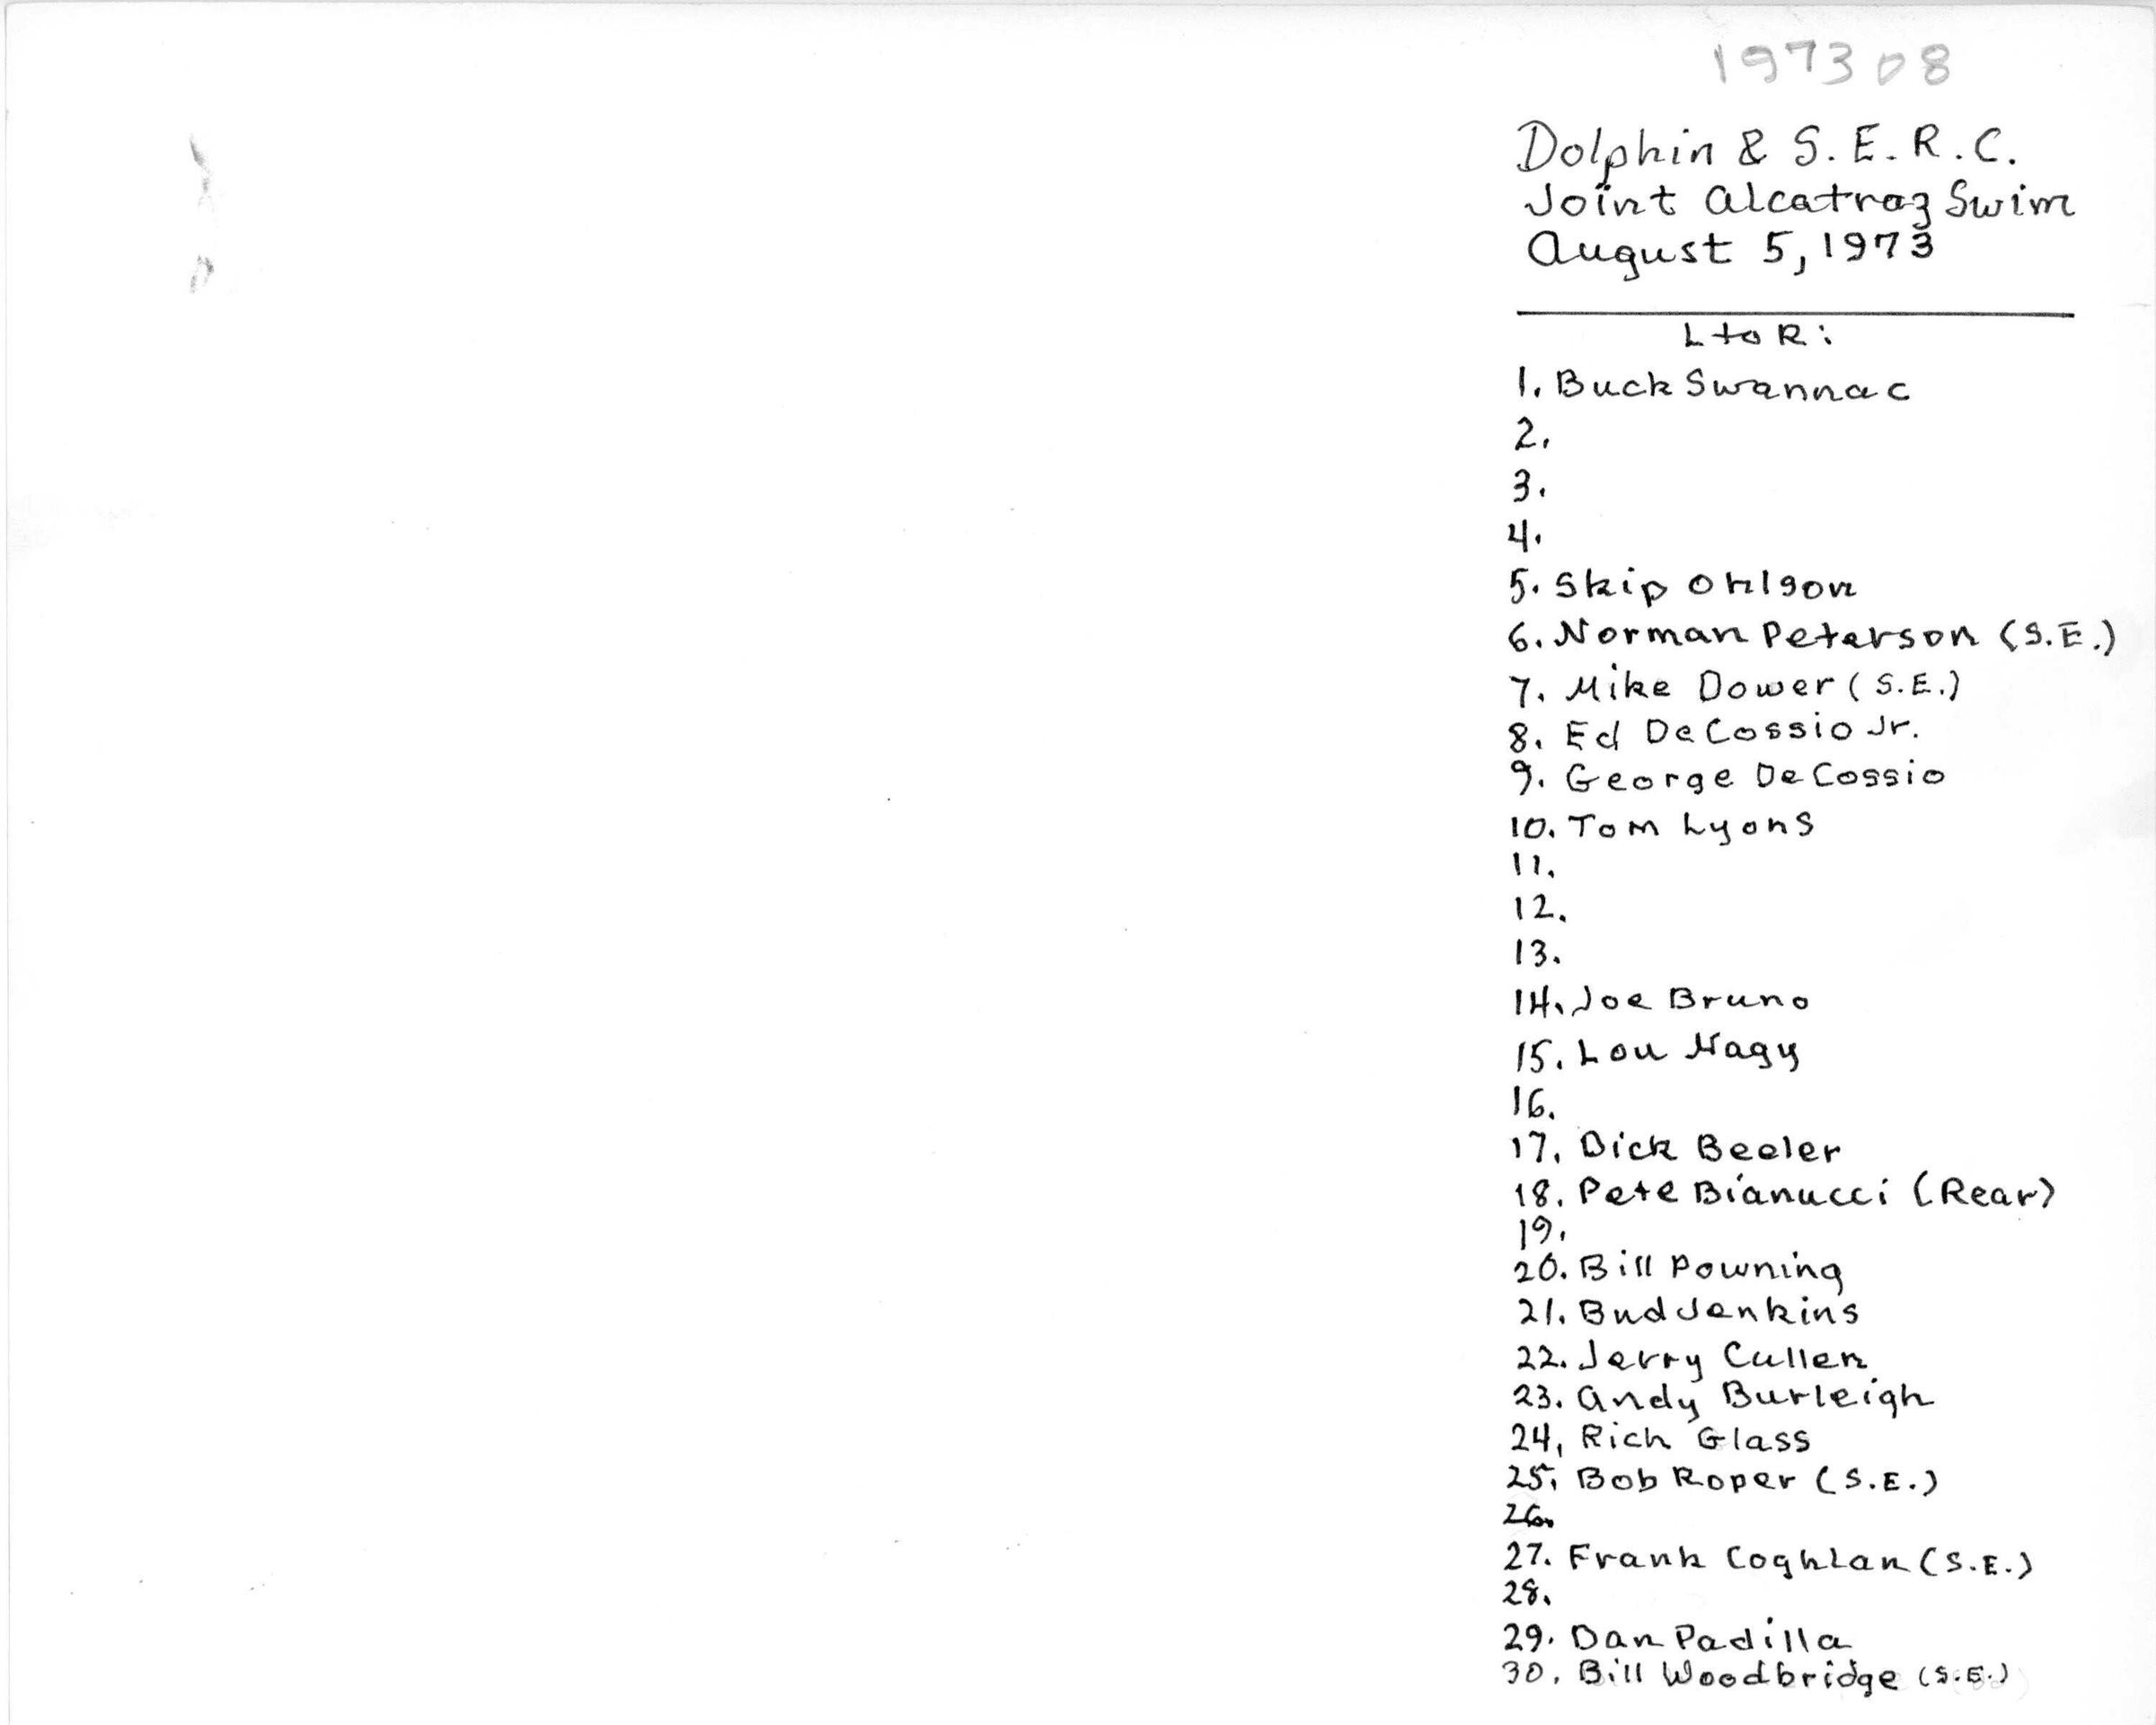 197308
Dolphin & S.E.R.C.
Joint Alcatraz Swim
August 5, 1973
L to R:
1. Buck Swannac
2.
3.
4.
5. Skip Ohlson
6. Norman Peterson (S.E.)
7. Mike Dower (S.E.)
8. Ed DeCossio Jr.
9. George DeCossio
10. Tom Lyons
11.
12.
13.
14. Joe Bruno
15. Lou Nagy
16.
17. Dick Beeler
18. Pete Bianucci (Rear)
19.
20. Bill Powning
21. Bud Jenkins
22. Jerry Cullen
23. Andy Burleigh
24, Rich Glass
25. Bob Roper (S.E.)
26.
27. Frank Coghlan (S.E.)
28.
29. Dan Padilla
30. Bill Woodbridge (S.E.)